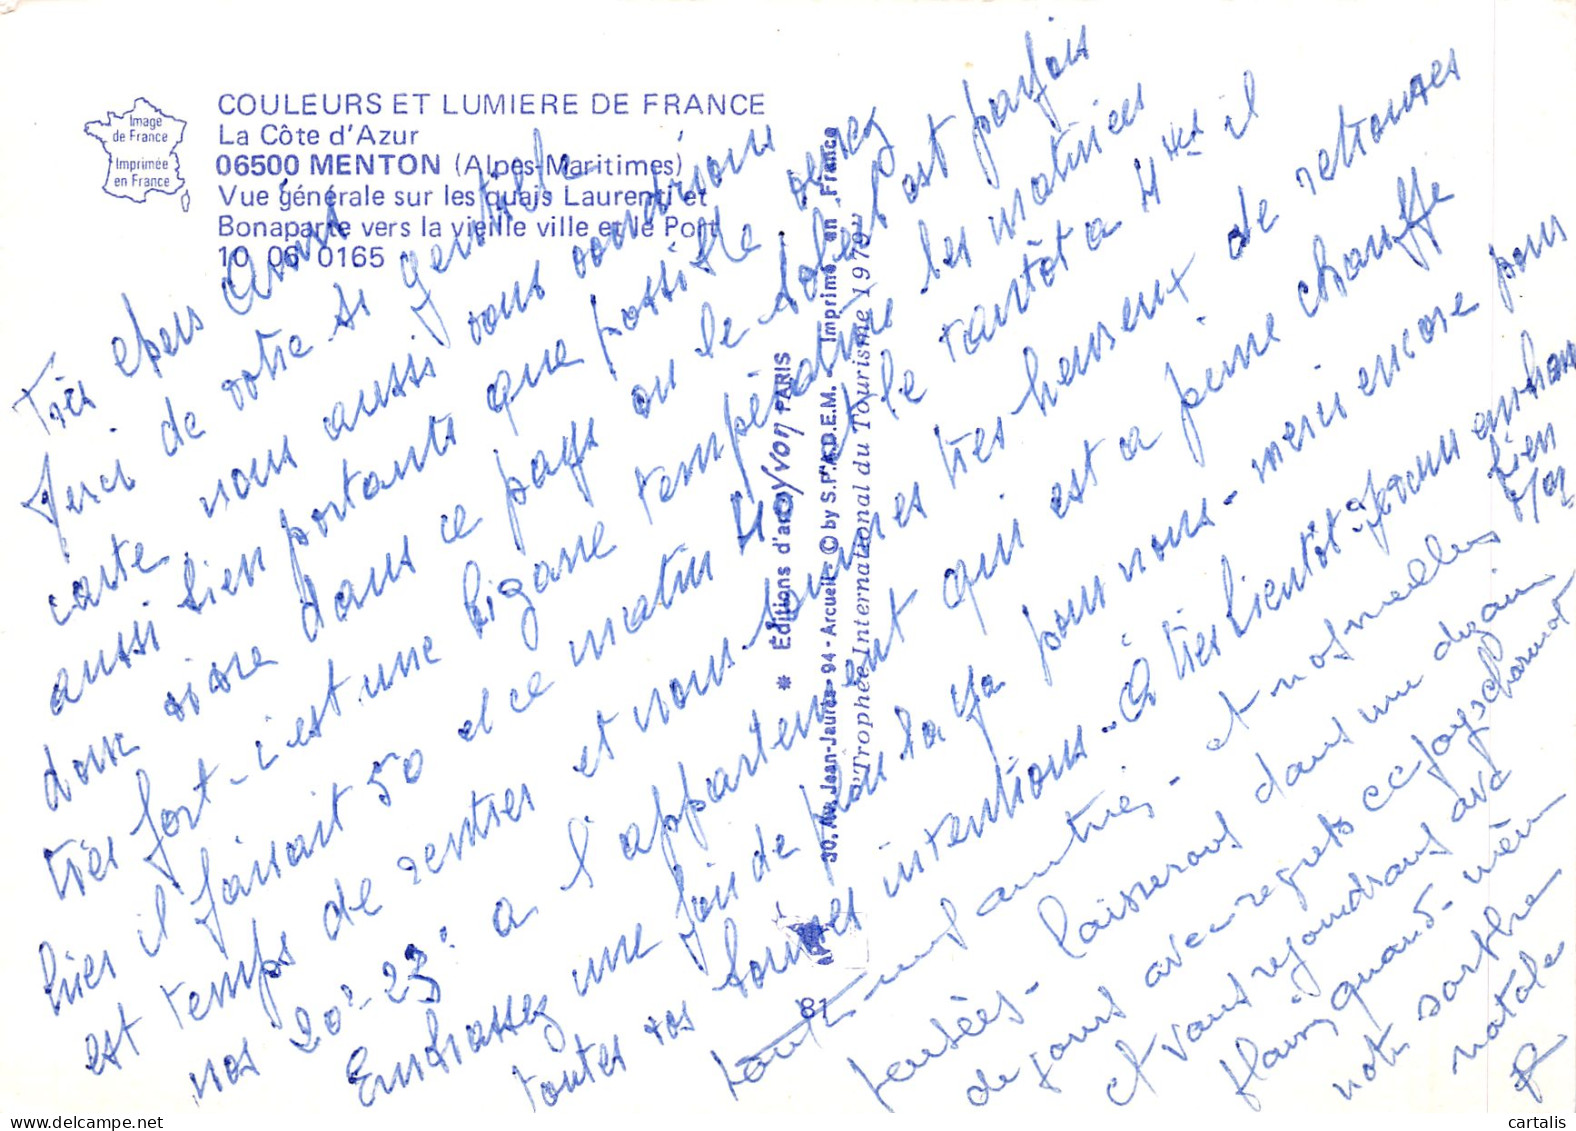 Image
de France
Imprimée
en France
COULEURS ET LUMIERE DE FRANCE
La Côte d'Azur
06500 MENTON (Alpes-Maritimes)
Vue générale sur les quais Laurenti et
Bonaparte vers la vieille ville et le Port
10 06 0165
Très chers Amis
Merci de votre si gentille
carte nous aussi nous voudrions
aussi bien portants que possible venez
donc vivre dans ce pays ou le soleil est parfois
très fort - c'est une bizarre température les matinées
hier il faisait 50 et ce matin 40 et le tantôt a 4 hes il
est temps de rentrer et nous sommes très heureux de retrouver
nos 20° - 23° a l'appartement qui est a peine chauffé
Embrassez une fois de plus la pour nous - merci encore pour
toutes vos bonnes intentions - à très bientôt
bien
tout
autres - et nos meilleurs
pensées - laisserons dans une dizaine
de jours avec regrets ce pays charmant
et vous rejoindrons avec
plaisir quand-même
notre Sarthe
natale
* Editions d'art YVON PARIS
30, Av. Jean-Jaurès - 94 - Arcueil - © by S.P.A.D.E.M. Imprimé en France
"Trophée International du Tourisme 1979"
81
cartalis